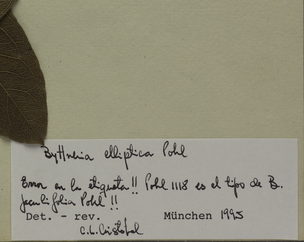 Byttneria elliptica Pohl
Error en la etiqueta!! Pohl 1118 es el tipo de B.
scalpellata Pohl!!
Det. - rev. München 1995
C.L. Cristóbal